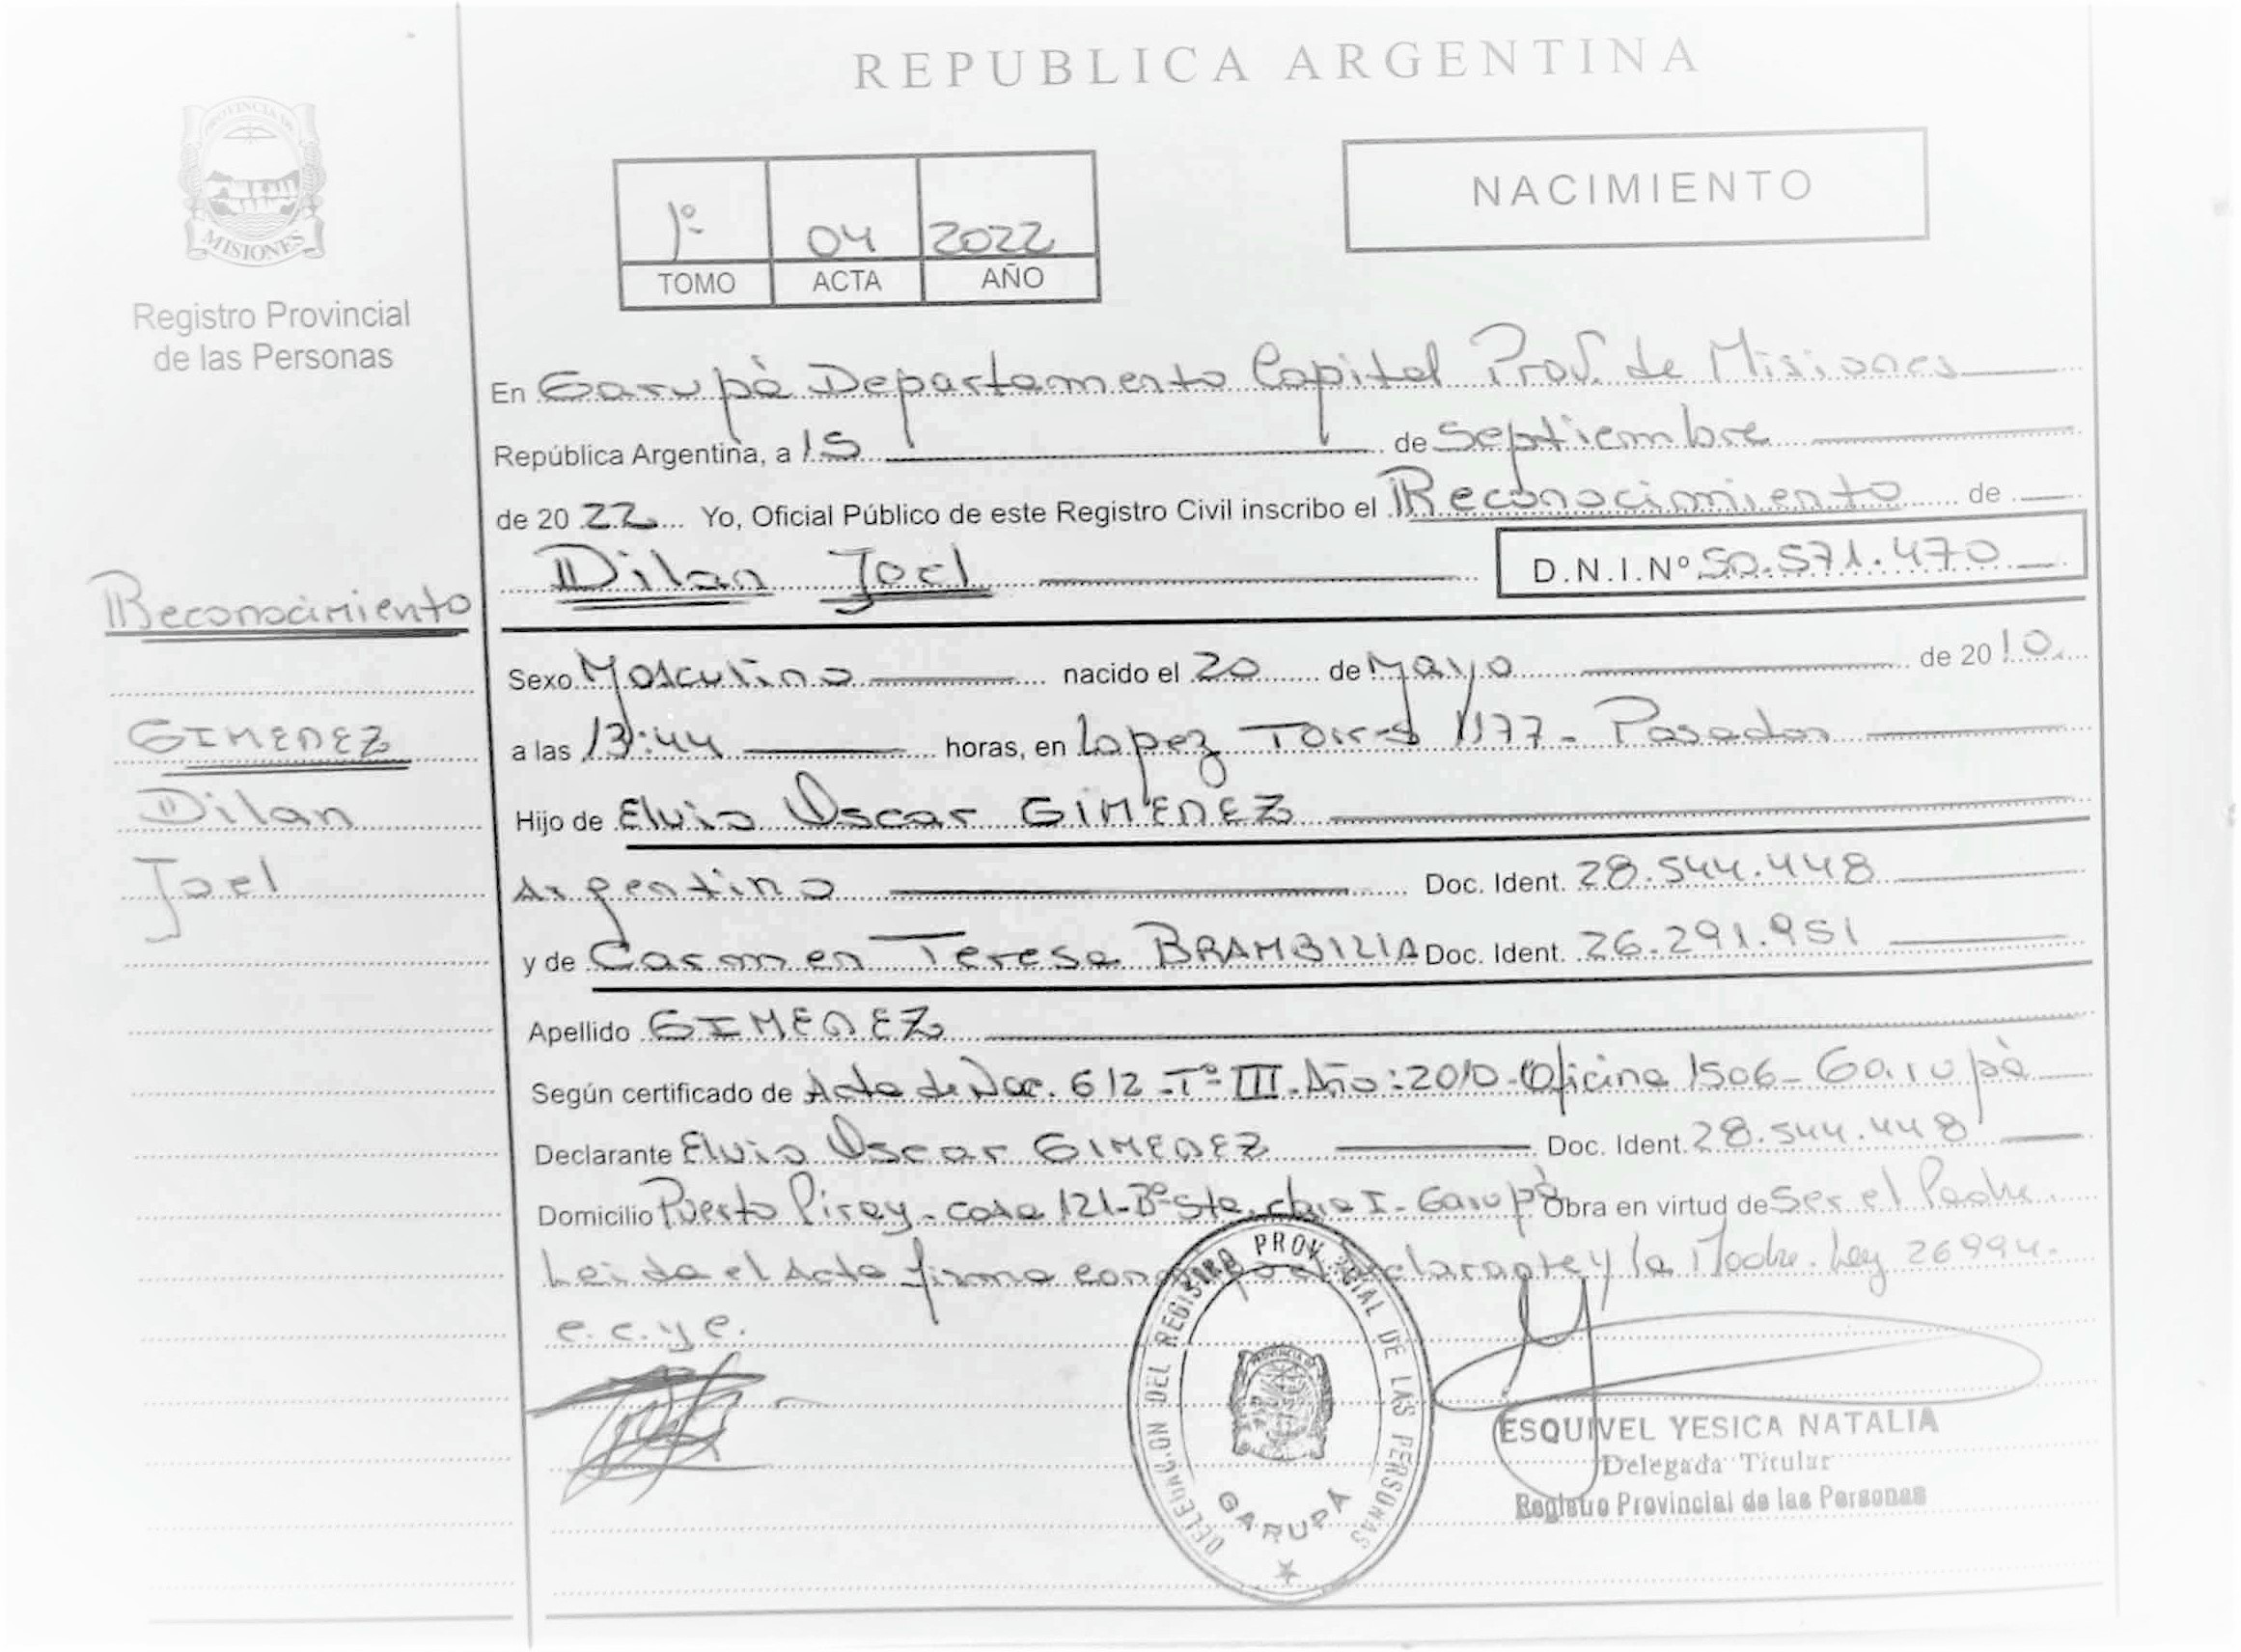 REPUBLICA ARGENTINA
PROVINCIA DE
MISIONES
Registro Provincial
de las Personas
1º 04 2022
TOMO ACTA AÑO
NACIMIENTO
En Garupà Departamento Capital Prov. de Misiones
República Argentina, a 15 de Septiembre
de 2022 Yo, Oficial Público de este Registro Civil inscribo el Reconocimiento de
Dilan Joel D.N.I.Nº 50.571.470
Reconocimiento
GIMENEZ
Dilan
Joel
Sexo Masculino nacido el 20 de Mayo de 2010.
a las 13:44 horas, en Lopez Torres 1177 - Posadas
Hijo de Elvio Oscar GIMENEZ
Argentino Doc. Ident. 28.544.448
y de Carmen Teresa BRAMBILIA Doc. Ident. 26.291.951
Apellido GIMENEZ
Según certificado de Acta de Nac. 612 - Tº III - Año: 2010 - Oficina 1506 - Garupà
Declarante Elvio Oscar GIMENEZ Doc. Ident. 28.544.448
Domicilio Puerto Piray - casa 121 - Bº Sta. Clara I - Garupà Obra en virtud de Ser el Padre.
Leida el Acta firma el declarante y la Madre. Ley 26994.
e.c.y e.
DELEGACION DEL REGISTRO PROVINCIAL DE LAS PERSONAS
GARUPÁ
ESQUIVEL YESICA NATALIA
Delegada Titular
Registro Provincial de las Personas